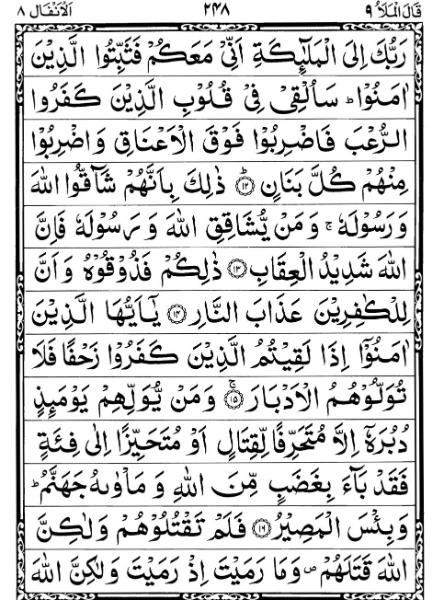 قَالَ الْمَلَاُ ۹ ۲۴۸ اَلْاَنْفَال ۸
رَبُّكَ اِلَى الْمَلٰٓئِكَةِ اَنِّیْ مَعَكُمْ فَثَبِّتُوا الَّذِیْنَ
اٰمَنُوْاؕ سَاُلْقِیْ فِیْ قُلُوْبِ الَّذِیْنَ كَفَرُوا
الرُّعْبَ فَاضْرِبُوْا فَوْقَ الْاَعْنَاقِ وَاضْرِبُوْا
مِنْهُمْ كُلَّ بَنَانٍؕ۝۱۲ ذٰلِكَ بِاَنَّهُمْ شَآقُّوا اللّٰهَ
وَرَسُوْلَهٗۚ وَمَنْ یُّشَاقِقِ اللّٰهَ وَرَسُوْلَهٗ فَاِنَّ
اللّٰهَ شَدِیْدُ الْعِقَابِ۝۱۳ ذٰلِكُمْ فَذُوْقُوْهُ وَاَنَّ
لِلْكٰفِرِیْنَ عَذَابَ النَّارِ۝۱۴ یٰۤاَیُّهَا الَّذِیْنَ
اٰمَنُوْۤا اِذَا لَقِیْتُمُ الَّذِیْنَ كَفَرُوْا زَحْفًا فَلَا
تُوَلُّوْهُمُ الْاَدْبَارَۚ۝۱۵ وَمَنْ یُّوَلِّهِمْ یَوْمَىِٕذٍ
دُبُرَهٗۤ اِلَّا مُتَحَرِّفًا لِّقِتَالٍ اَوْ مُتَحَیِّزًا اِلٰى فِئَةٍ
فَقَدْ بَآءَ بِغَضَبٍ مِّنَ اللّٰهِ وَمَاْوٰىهُ جَهَنَّمُؕ
وَبِئْسَ الْمَصِیْرُ۝۱۶ فَلَمْ تَقْتُلُوْهُمْ وَلٰكِنَّ
اللّٰهَ قَتَلَهُمْ۪ وَمَا رَمَیْتَ اِذْ رَمَیْتَ وَلٰكِنَّ اللّٰهَ